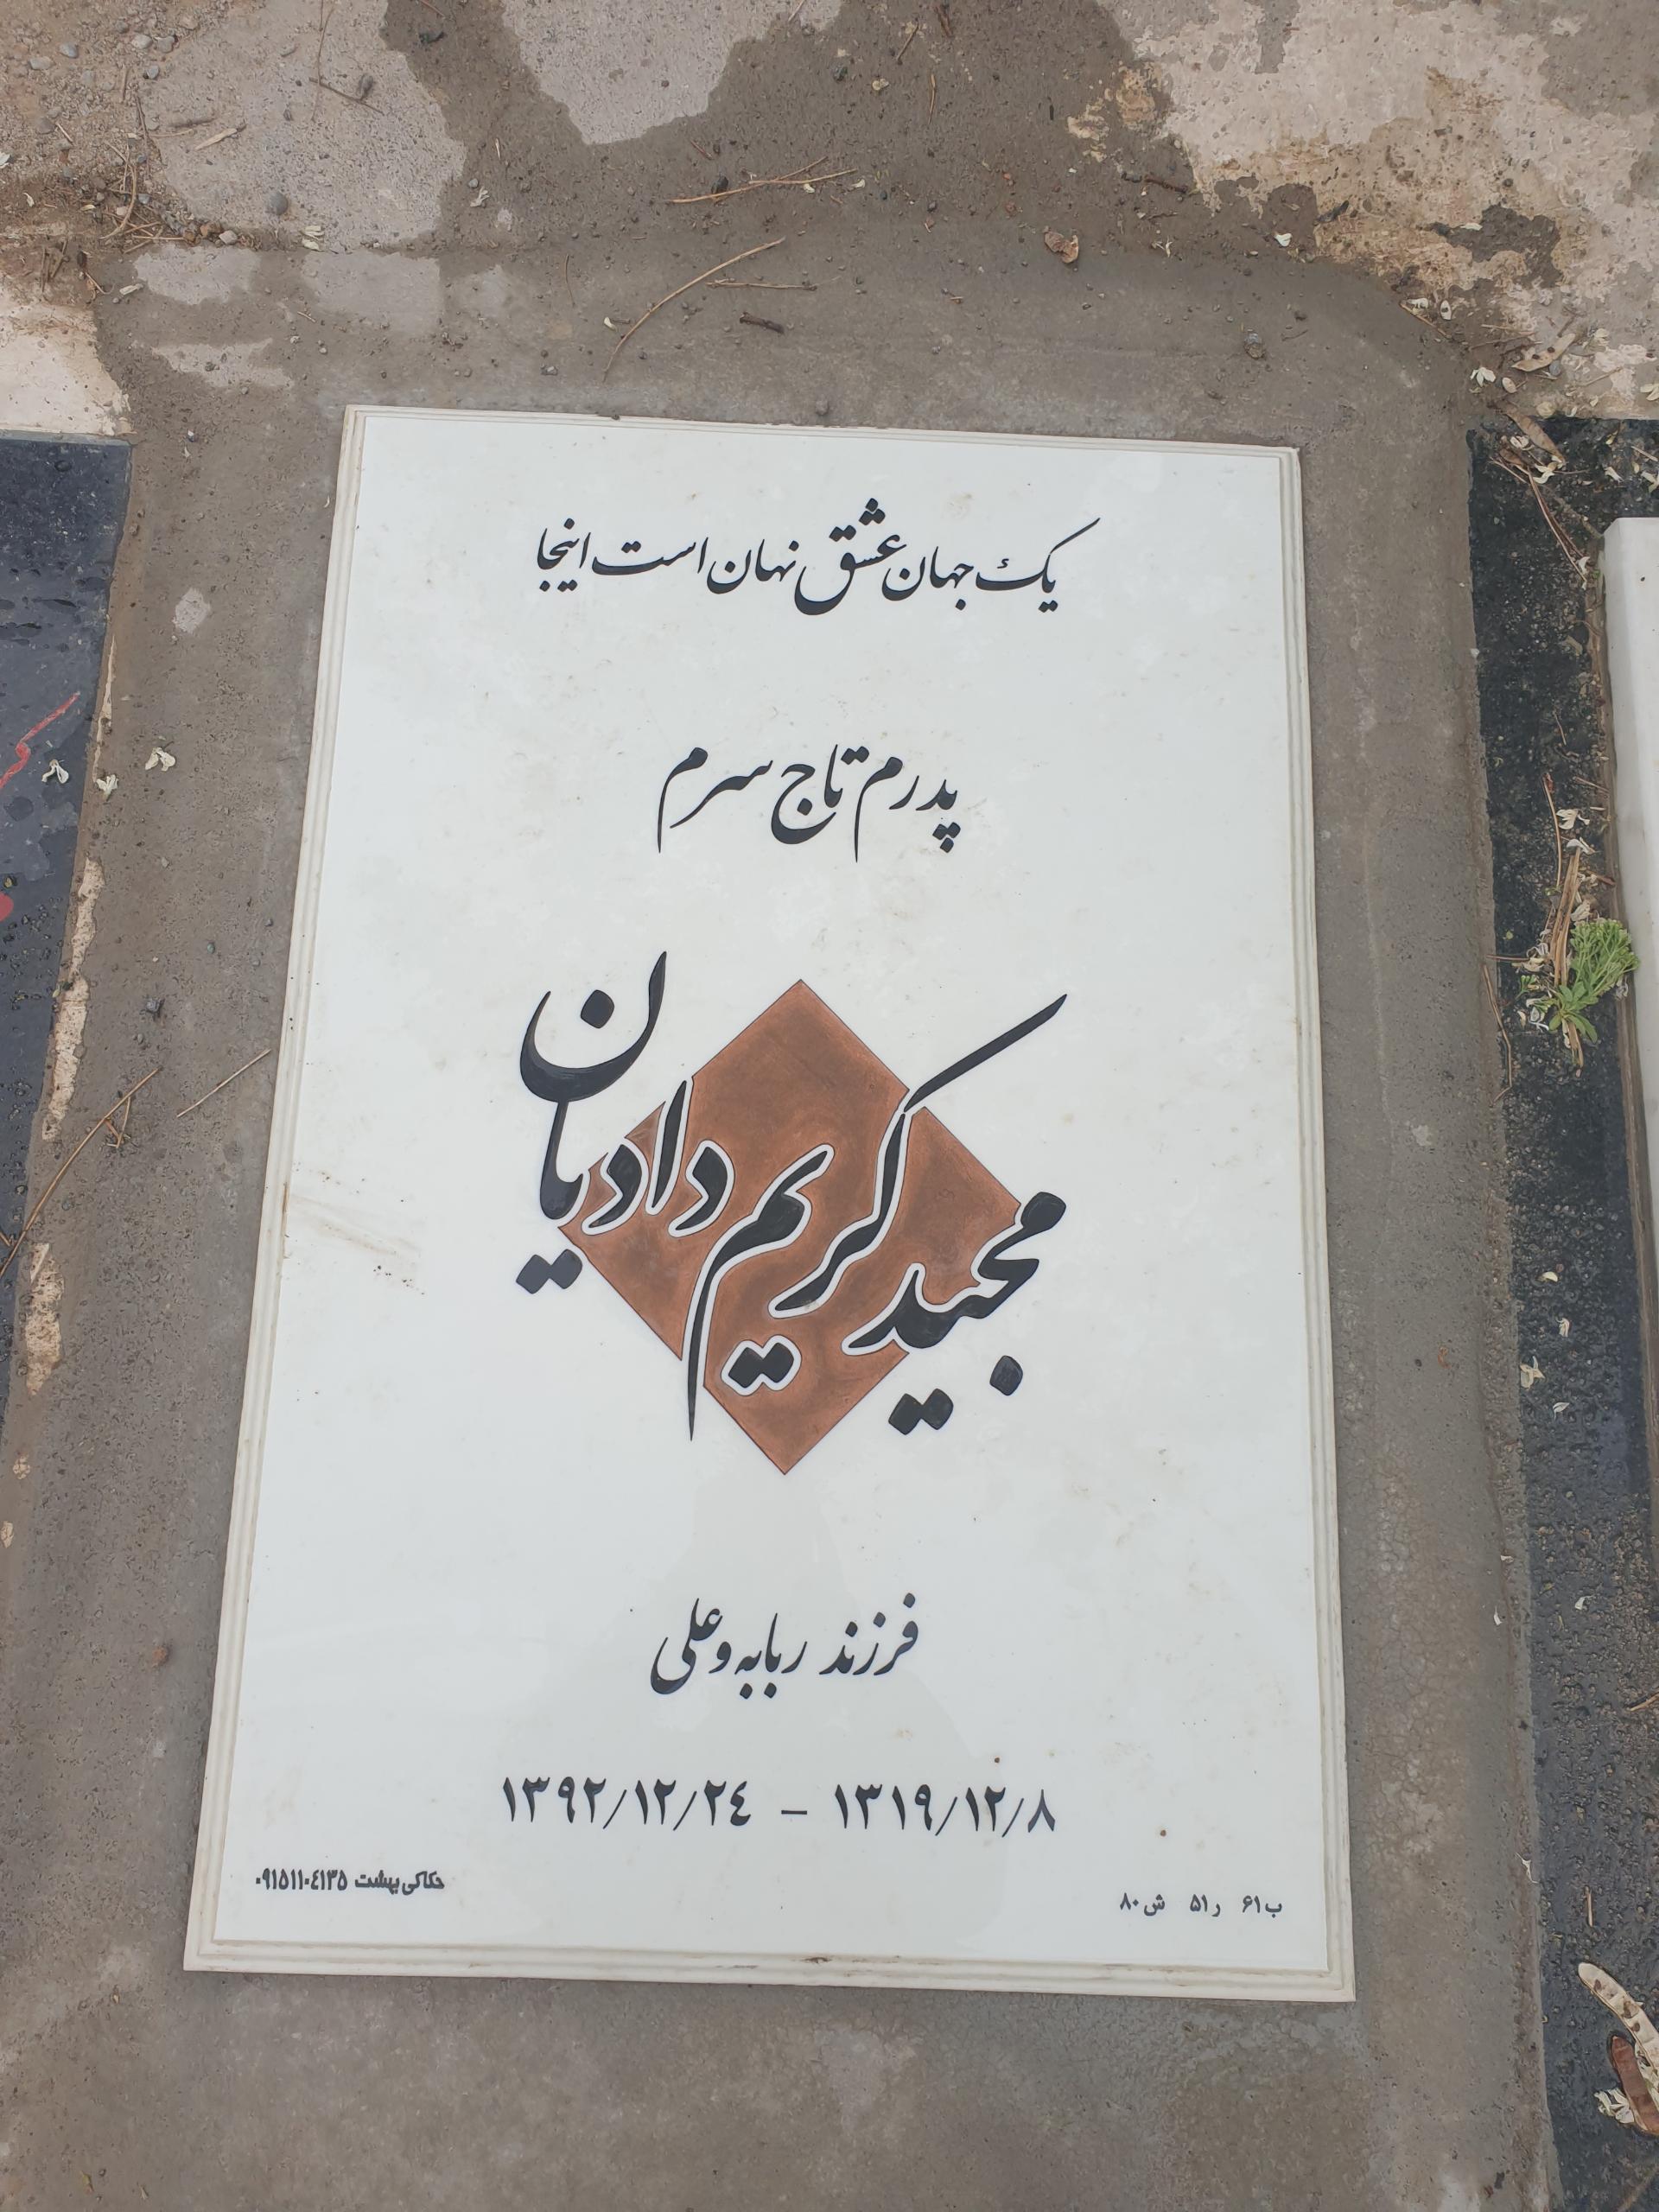 یک جهان عشق نهان است اینجا
پدرم تاج سرم
مجید کریم دادیان
فرزند ربابه و علی
۱۳۱۹/۱۲/۸ - ۱۳۹۲/۱۲/۲٤
ب ۶۱ ر ۵۱ ش ۸۰
حکاکی بهشت ۰۹۱۵۱۱۰٤۱۳۵